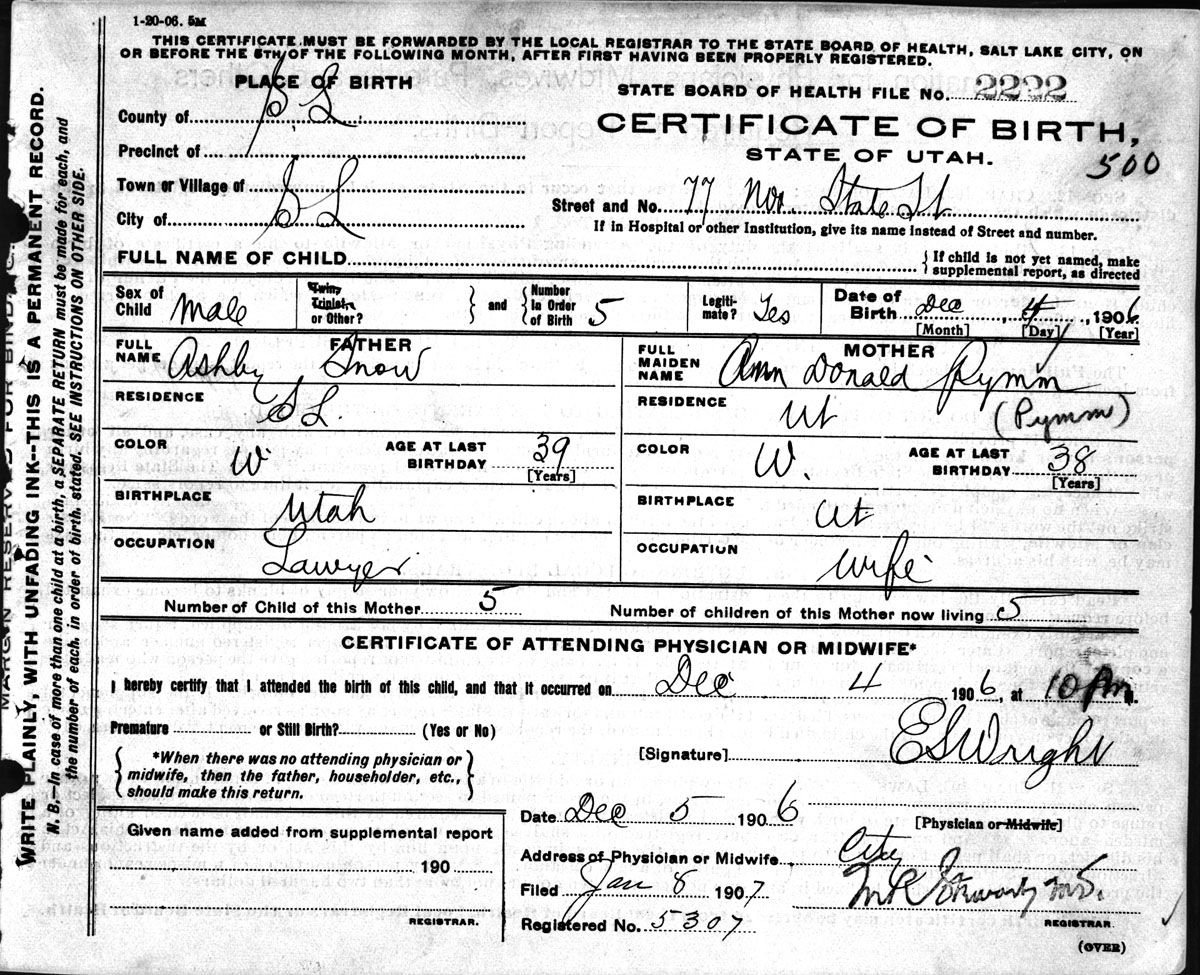 1-20-06. 5M
THIS CERTIFICATE MUST BE FORWARDED BY THE LOCAL REGISTRAR TO THE STATE BOARD OF HEALTH, SALT LAKE CITY, ON
OR BEFORE THE 5TH OF THE FOLLOWING MONTH, AFTER FIRST HAVING BEEN PROPERLY REGISTERED.
PLACE OF BIRTH
County of S. L.
Precinct of
Town or Village of
City of S L
STATE BOARD OF HEALTH FILE No. 2292
CERTIFICATE OF BIRTH,
STATE OF UTAH.
500
Street and No. 77 Nor. State St
If in Hospital or other Institution, give its name instead of Street and number.
FULL NAME OF CHILD
{ If child is not yet named, make
supplemental report, as directed
Sex of Child Male
Twin, Triplet, or Other?
and
Number in Order of Birth 5
Legitimate? Yes
Date of Birth Dec 4, 1906
[Month] [Day] [Year]
FATHER
FULL NAME Ashby Snow
RESIDENCE S L.
COLOR W
AGE AT LAST BIRTHDAY 39
[Years]
BIRTHPLACE Utah
OCCUPATION Lawyer
MOTHER
FULL MAIDEN NAME Ann Donald Pymm
RESIDENCE Ut (Pymm)
COLOR W.
AGE AT LAST BIRTHDAY 38
[Years]
BIRTHPLACE Ut
OCCUPATION Wife
Number of Child of this Mother 5
Number of children of this Mother now living 5
CERTIFICATE OF ATTENDING PHYSICIAN OR MIDWIFE*
I hereby certify that I attended the birth of this child, and that it occurred on Dec 4 1906, at 10 P.m.
Premature or Still Birth? (Yes or No)
*When there was no attending physician or
midwife, then the father, householder, etc.,
should make this return.
[Signature] E S Wright
Date Dec 5 1906
[Physician or Midwife]
Given name added from supplemental report
190
REGISTRAR.
Address of Physician or Midwife City
Filed Jan 8 1907
REGISTRAR.
Registered No. 5307
(OVER)
MARGIN RESERVED FOR BINDING.
WRITE PLAINLY, WITH UNFADING INK--THIS IS A PERMANENT RECORD.
N. B.—In case of more than one child at a birth, a SEPARATE RETURN must be made for each, and
the number of each, in order of birth, stated. SEE INSTRUCTIONS ON OTHER SIDE.